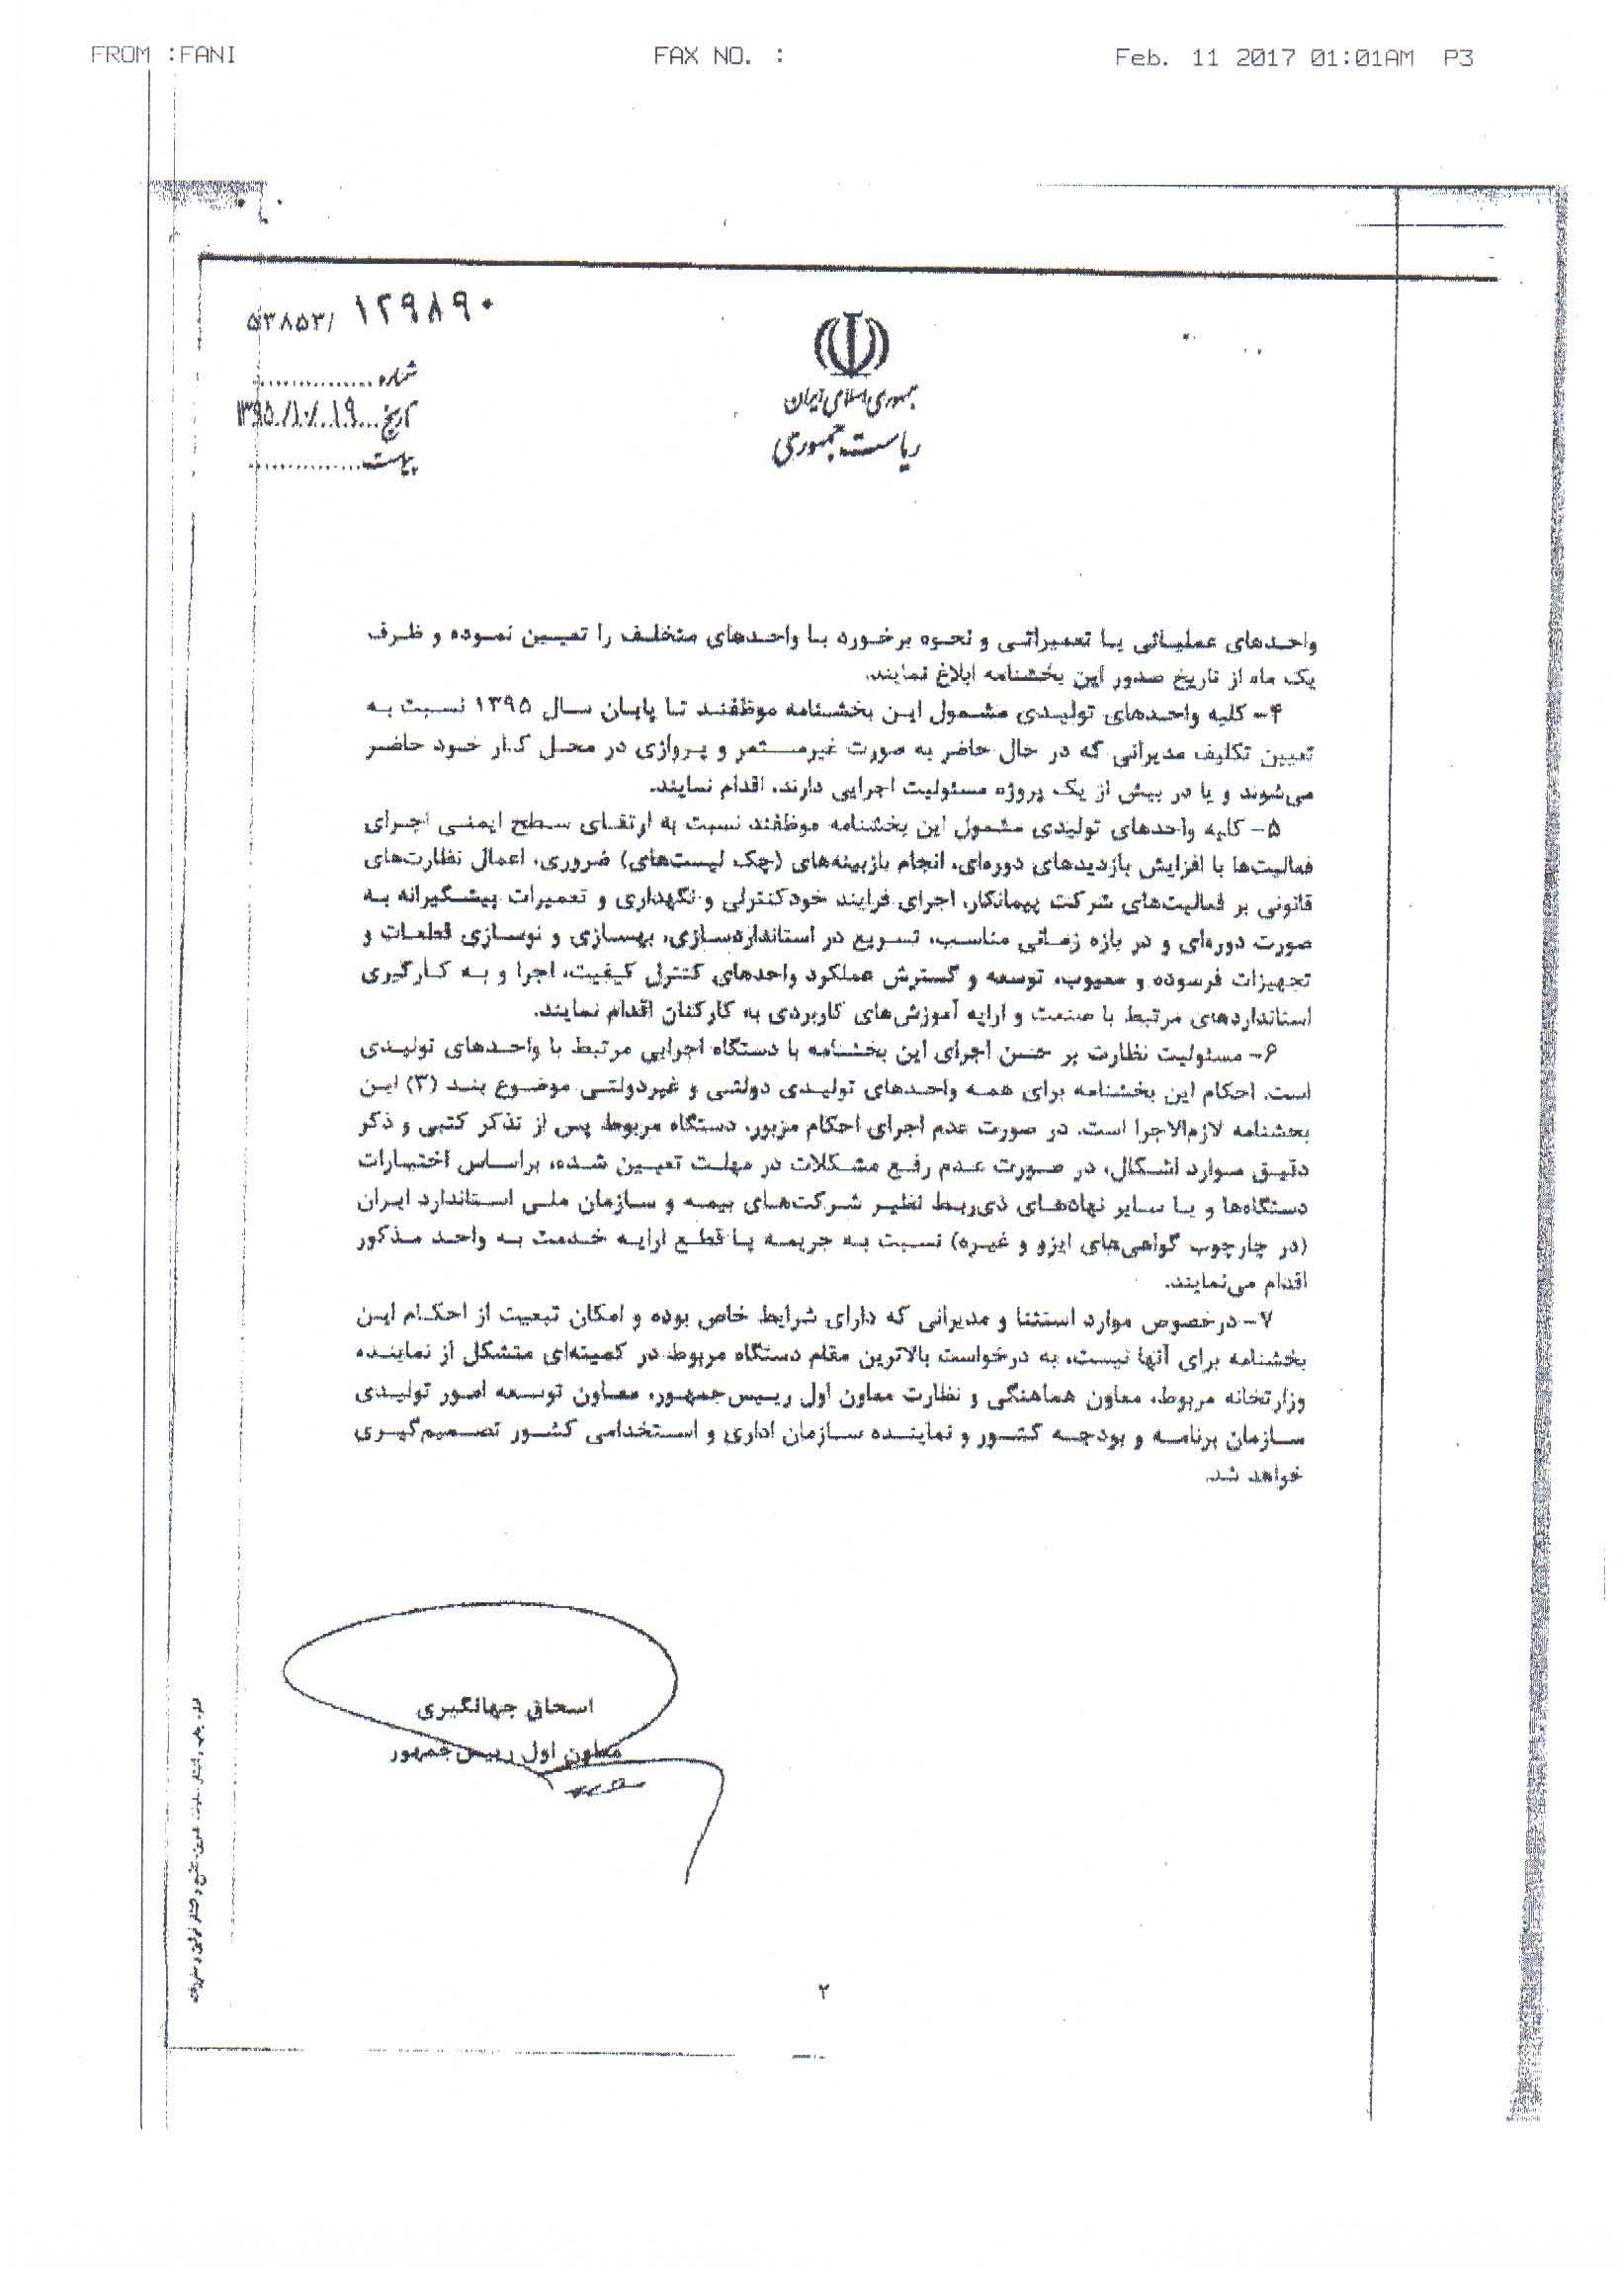 FROM :FANI FAX NO. : Feb. 11 2017 01:01AM P3
۵۳۸۵۳/ ۱۲۹۸۹۰
شماره
تاریخ ۱۳۹۵/۱۰/۱۹
پیوست
جمهوری اسلامی ایران
ریاست جمهوری
واحدهای عملیاتی یا تعمیراتی و نحوه برخورد با واحدهای متخلف را تعیین نموده و ظرف
یک ماه از تاریخ صدور این بخشنامه ابلاغ نمایند.
۴- کلیه واحدهای تولیدی مشمول این بخشنامه موظفند تا پایان سال ۱۳۹۵ نسبت به
تعیین تکلیف مدیرانی که در حال حاضر به صورت غیرمستمر و پروازی در محل کار خود حاضر
می‌شوند و یا در بیش از یک پروژه مسئولیت اجرایی دارند، اقدام نمایند.
۵- کلیه واحدهای تولیدی مشمول این بخشنامه موظفند نسبت به ارتقای سطح ایمنی اجرای
فعالیت‌ها با افزایش بازدیدهای دوره‌ای، انجام بازبینه‌های (چک لیست‌های) ضروری، اعمال نظارت‌های
قانونی بر فعالیت‌های شرکت پیمانکار، اجرای فرایند خودکنترلی و نگهداری و تعمیرات پیشگیرانه به
صورت دوره‌ای و در بازه زمانی مناسب، تسریع در استانداردسازی، بهسازی و نوسازی قطعات و
تجهیزات فرسوده و معیوب، توسعه و گسترش عملکرد واحدهای کنترل کیفیت، اجرا و به کارگیری
استانداردهای مرتبط با صنعت و ارایه آموزش‌های کاربردی به کارکنان اقدام نمایند.
۶- مسئولیت نظارت بر حسن اجرای این بخشنامه با دستگاه اجرایی مرتبط با واحدهای تولیدی
است. احکام این بخشنامه برای همه واحدهای تولیدی دولتی و غیردولتی موضوع بند (۳) این
بخشنامه لازم‌الاجرا است. در صورت عدم اجرای احکام مزبور، دستگاه مربوط پس از تذکر کتبی و ذکر
دقیق موارد اشکال، در صورت عدم رفع مشکلات در مهلت تعیین شده، براساس اختیارات
دستگاه‌ها و یا سایر نهادهای ذی‌ربط نظیر شرکت‌های بیمه و سازمان ملی استاندارد ایران
(در چارچوب گواهی‌های ایزو و غیره) نسبت به جریمه یا قطع ارایه خدمت به واحد مذکور
اقدام می‌نمایند.
۷- درخصوص موارد استثنا و مدیرانی که دارای شرایط خاص بوده و امکان تبعیت از احکام این
بخشنامه برای آنها نیست، به درخواست بالاترین مقام دستگاه مربوط در کمیته‌ای متشکل از نماینده
وزارتخانه مربوط، معاون هماهنگی و نظارت معاون اول رییس‌جمهور، معاون توسعه امور تولیدی
سازمان برنامه و بودجه کشور و نماینده سازمان اداری و استخدامی کشور تصمیم‌گیری
خواهد شد.
اسحاق جهانگیری
معاون اول رییس‌جمهور
۲